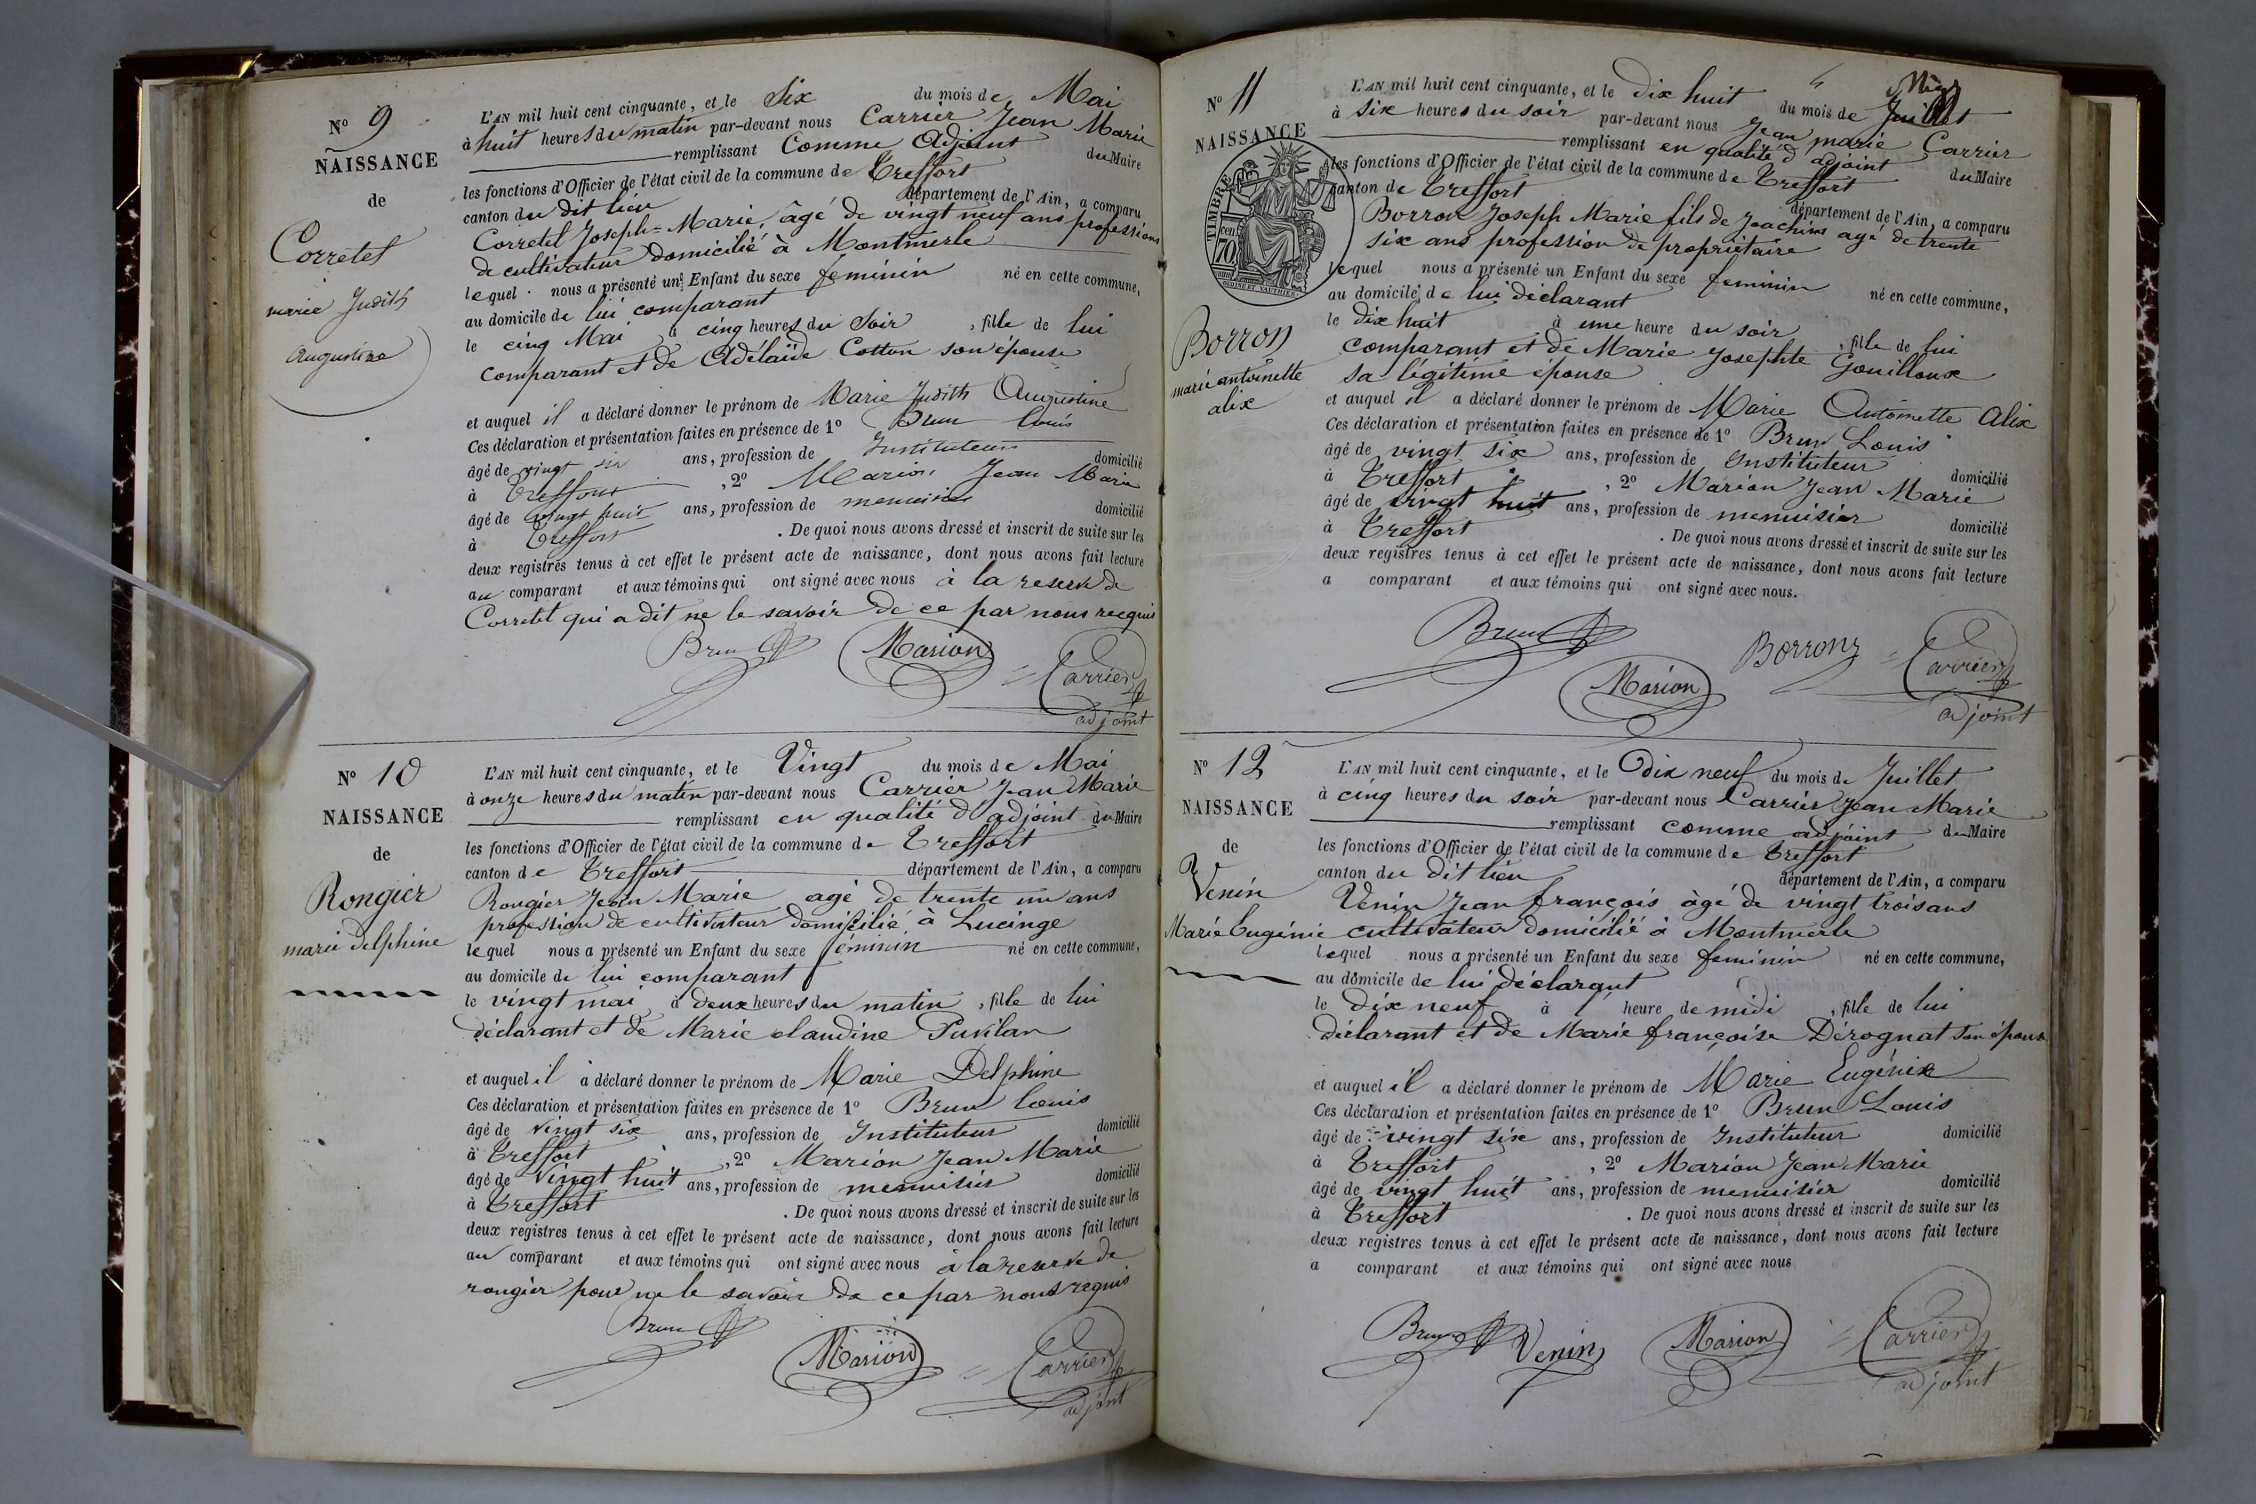 N° 9
NAISSANCE
de
Corretel
marie Judith
Augustine
L'AN mil huit cent cinquante, et le Six du mois de Mai
à huit heures du matin par-devant nous Carrier Jean Marie
remplissant Comme Adjoint du Maire
les fonctions d'Officier de l'état civil de la commune de Treffort
canton du dit lieu département de l'Ain, a comparu
Corretel Joseph=Marie, âgé de vingt neuf ans profession
de cultivateur domicilié à Montmerle
lequel nous a présenté un Enfant du sexe féminin né en cette commune,
au domicile de lui comparant
le cinq Mai à cinq heures du Soir, fille de lui
comparant et de Adélaïde Cotton son épouse
et auquel il a déclaré donner le prénom de Marie Judith Augustine
Ces déclaration et présentation faites en présence de 1° Brun Louis
âgé de vingt six ans, profession de Instituteur domicilié
à Treffort, 2° Marion Jean Marie
âgé de vingt huit ans, profession de menuisier domicilié
à Treffort. De quoi nous avons dressé et inscrit de suite sur les
deux registres tenus à cet effet le présent acte de naissance, dont nous avons fait lecture
au comparant et aux témoins qui ont signé avec nous à la reserve de
Corretel qui a dit ne le savoir de ce par nous recquis
Brun Marion Carrier
adjoint
N° 10
NAISSANCE
de
Rongier
marie delphine
L'AN mil huit cent cinquante, et le Vingt du mois de Mai
à onze heures du matin par-devant nous Carrier Jean Marie
remplissant en qualité d'adjoint du Maire
les fonctions d'Officier de l'état civil de la commune de Treffort
canton de Treffort département de l'Ain, a comparu
Rongier Jean Marie agé de trente un ans
profession de cultivateur domicilié à Lucinge
lequel nous a présenté un Enfant du sexe féminin né en cette commune,
au domicile de lui comparant
le vingt mai à deux heures du matin, fille de lui
déclarant et de Marie claudine Puvilan
et auquel il a déclaré donner le prénom de Marie Delphine
Ces déclaration et présentation faites en présence de 1° Brun Louis
âgé de vingt six ans, profession de Instituteur domicilié
à Treffort, 2° Marion Jean Marie
âgé de vingt huit ans, profession de menuisier domicilié
à Treffort. De quoi nous avons dressé et inscrit de suite sur les
deux registres tenus à cet effet le présent acte de naissance, dont nous avons fait lecture
au comparant et aux témoins qui ont signé avec nous à la reserve de
rongier pour ne le savoir de ce par nous requis
Brun Marion Carrier
adjoint
N° 11
NAISSANCE
TIMBRE
70 cen
Borron
marie antoinette
alix
L'AN mil huit cent cinquante, et le dix huit du mois de Juillet
à six heures du soir par-devant nous Jean marie Carrier
remplissant en qualité d'adjoint du Maire
les fonctions d'Officier de l'état civil de la commune de Treffort
canton de Treffort département de l'Ain, a comparu
Borron Joseph Marie fils de Joachim agé de trente
six ans profession de propriétaire
lequel nous a présenté un Enfant du sexe féminin né en cette commune,
au domicile de lui déclarant
le dix huit à une heure du soir, fille de lui
comparant et de Marie Josephte Gouilloux
sa légitime épouse
et auquel il a déclaré donner le prénom de Marie Antoinette Alix
Ces déclaration et présentation faites en présence de 1° Brun Louis
âgé de vingt six ans, profession de Instituteur domicilié
à Treffort, 2° Marion Jean Marie
âgé de vingt huit ans, profession de menuisier domicilié
à Treffort. De quoi nous avons dressé et inscrit de suite sur les
deux registres tenus à cet effet le présent acte de naissance, dont nous avons fait lecture
a comparant et aux témoins qui ont signé avec nous.
Brun Marion Borron Carrier
adjoint
N° 12
NAISSANCE
de
Venin
Marie Eugénie
L'AN mil huit cent cinquante, et le dix neuf du mois de Juillet
à cinq heures du soir par-devant nous Carrier Jean Marie
remplissant comme adjoint du Maire
les fonctions d'Officier de l'état civil de la commune de Treffort
canton du dit lieu département de l'Ain, a comparu
Venin Jean françois âgé de vingt trois ans
cultivateur domicilié à Montmerle
lequel nous a présenté un Enfant du sexe féminin né en cette commune,
au domicile de lui déclarant
le dix neuf à l' heure de midi, fille de lui
déclarant et de Marie françoise Dérognat son épouse
et auquel il a déclaré donner le prénom de Marie Eugénie
Ces déclaration et présentation faites en présence de 1° Brun Louis
âgé de vingt six ans, profession de Instituteur domicilié
à Treffort, 2° Marion Jean Marie
âgé de vingt huit ans, profession de menuisier domicilié
à Treffort. De quoi nous avons dressé et inscrit de suite sur les
deux registres tenus à cet effet le présent acte de naissance, dont nous avons fait lecture
a comparant et aux témoins qui ont signé avec nous
Brun Venin Marion Carrier
adjoint